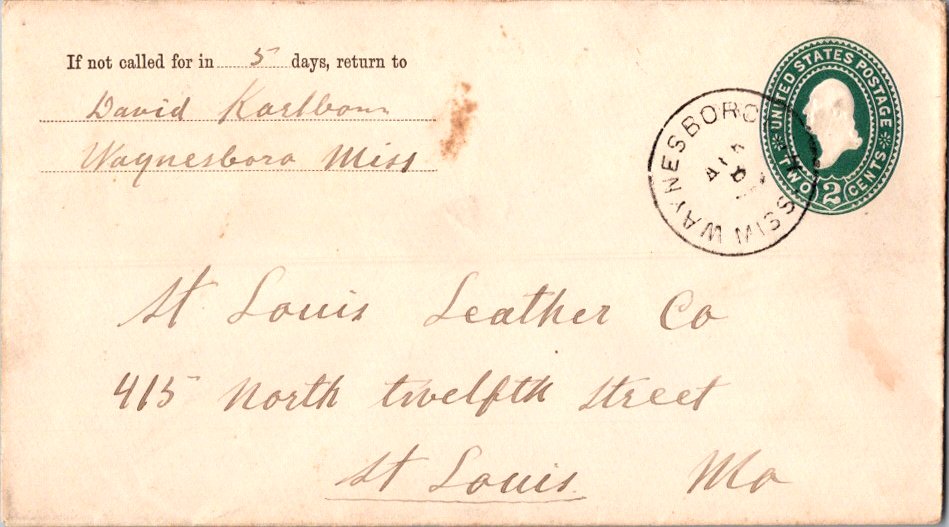 If not called for in 5 days, return to
David
Waynesboro Miss
WAYNESBORO MISS.
UNITED STATES POSTAGE
TWO 2 CENTS
St Louis Leather Co
415 North twelfth Street
St Louis Mo